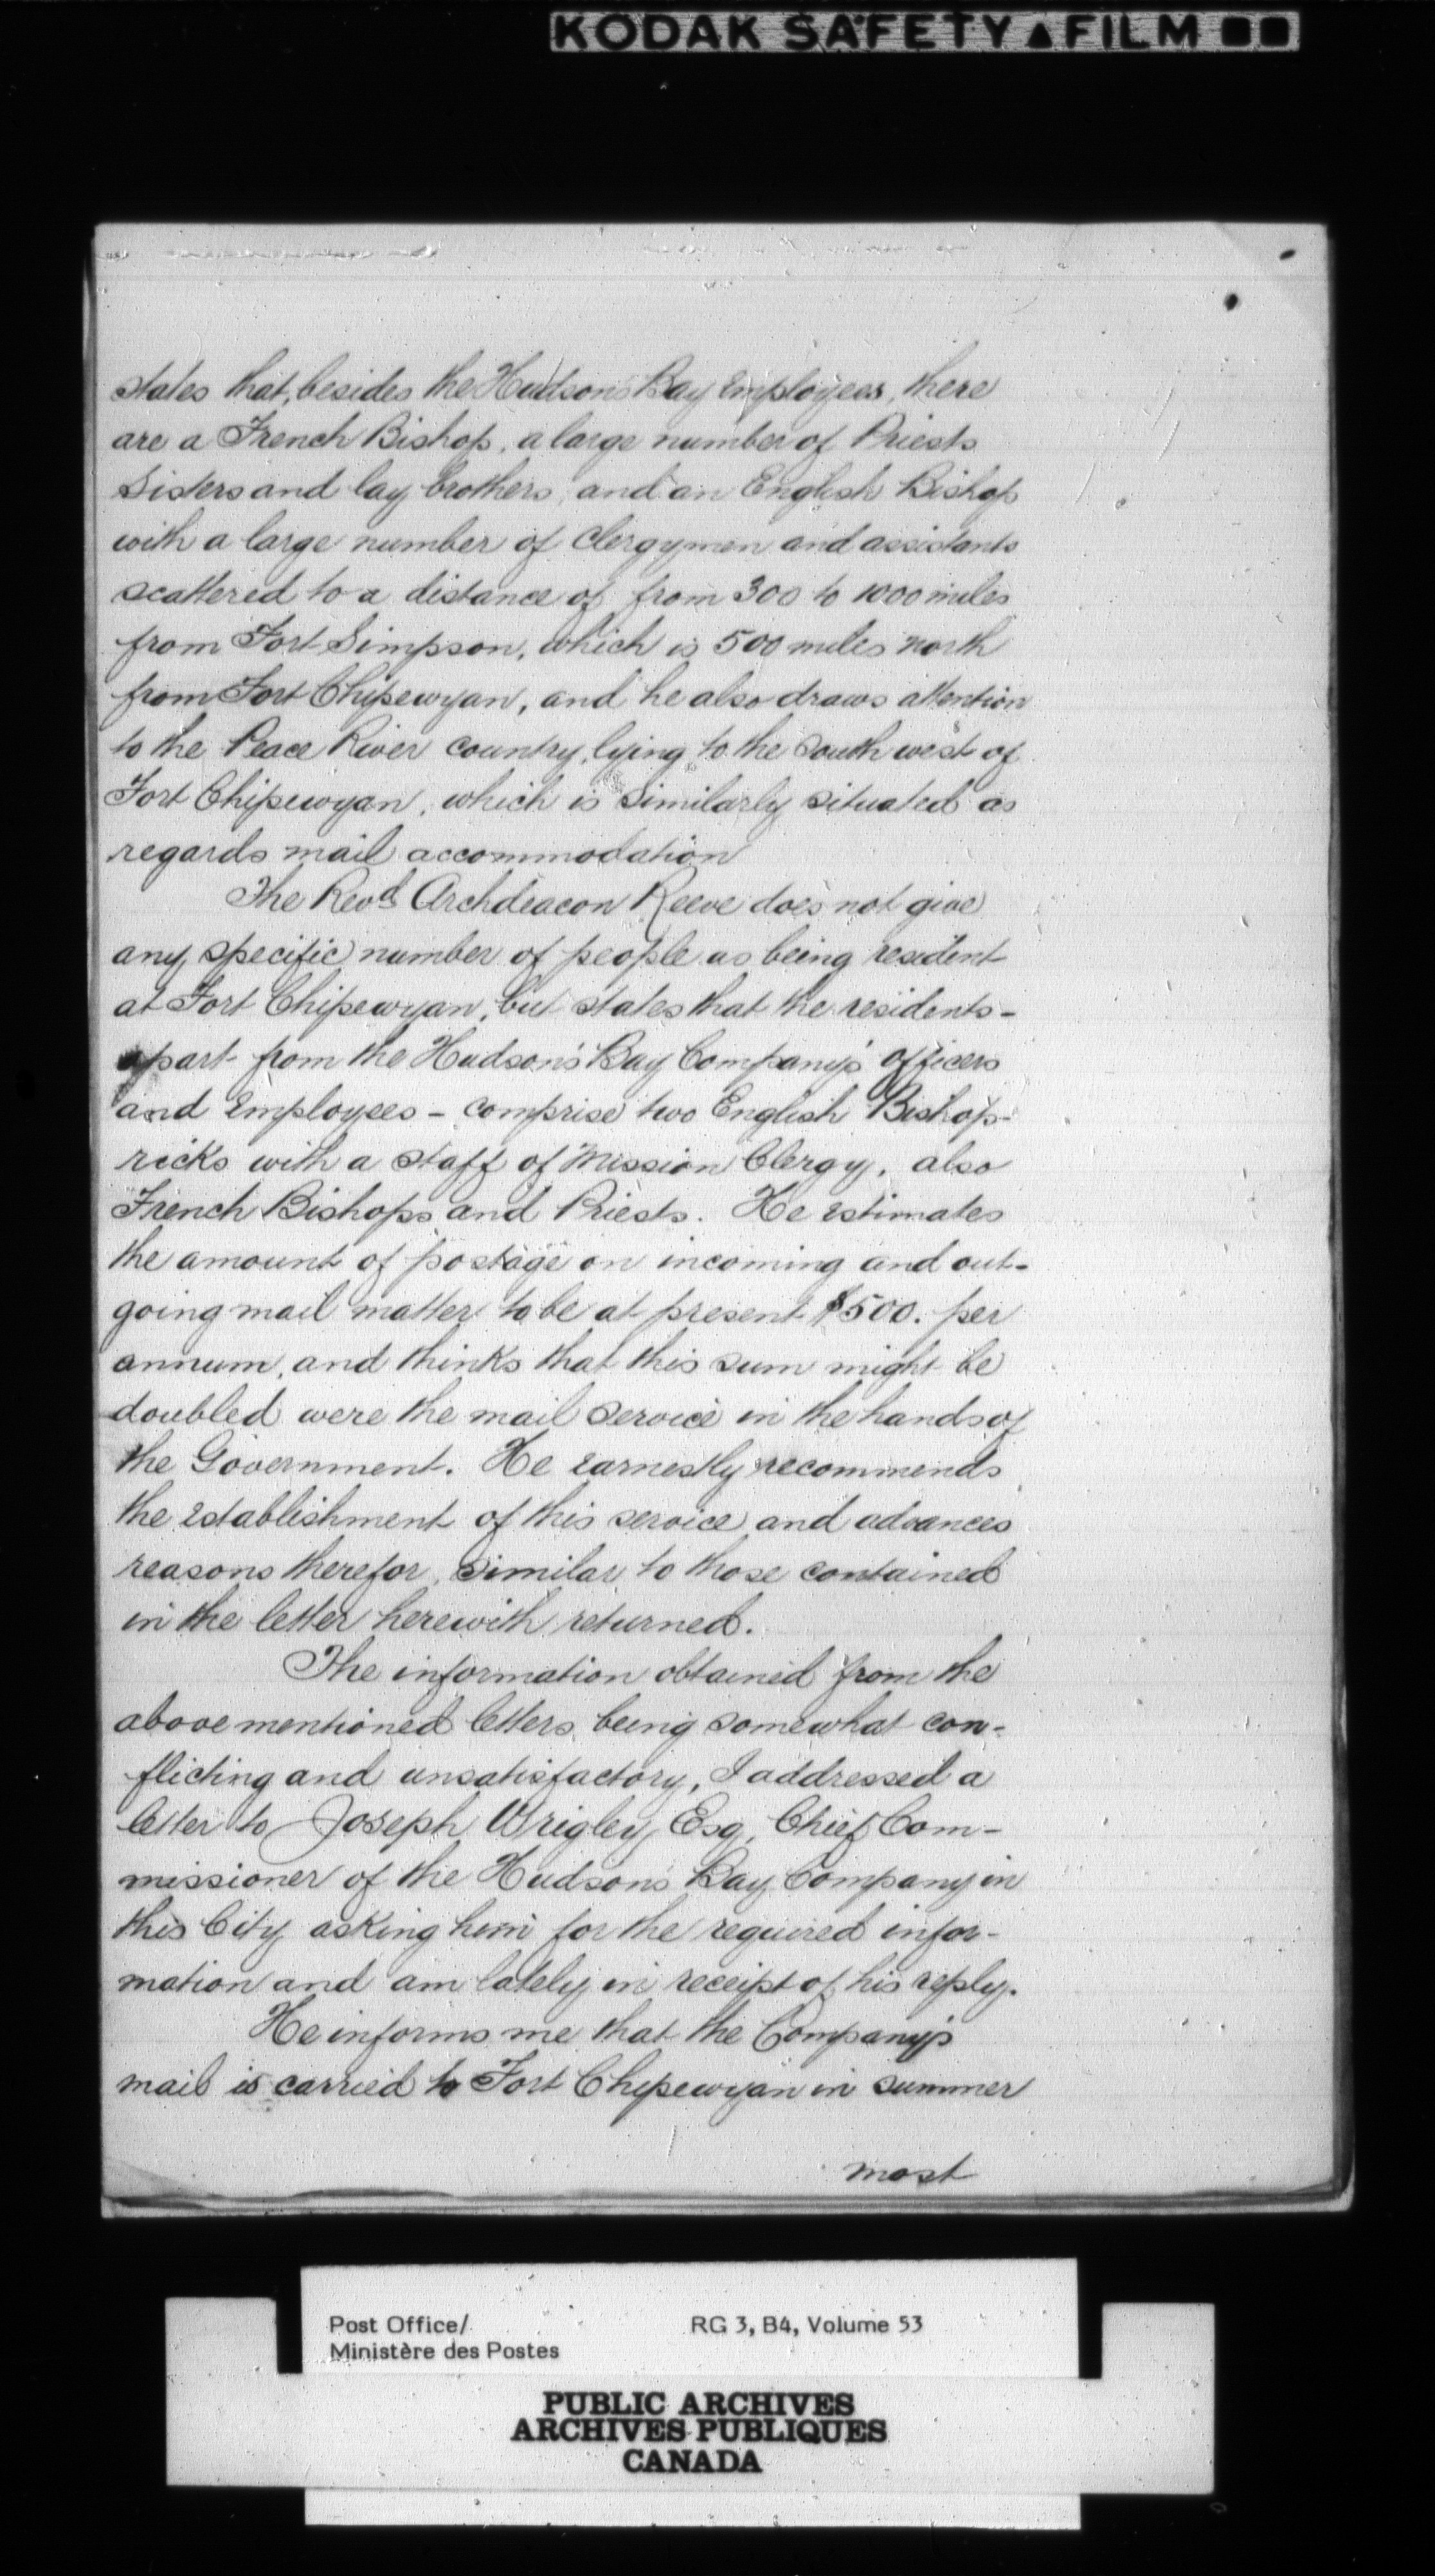 KODAK SAFETY FILM
states that, besides the Hudsons Bay Employees, there
are a French Bishop, a large number of Priests
Sisters and lay brothers, and an English Bishop
with a large number of Clergymen and assistants
scattered to a distance of from 300 to 1000 miles
from Fort Simpson, which is 500 miles north
from Fort Chipewyan, and he also draws attention
to the Peace River country, lying to the South west of
Fort Chipewyan, which is similarly situated as
regards mail accommodation
The Revd Archdeacon Reeve does not give
any specific number of people as being resident
at Fort Chipewyan, but states that the residents -
apart from the Hudson's Bay Company's officers
and Employees - comprise two English Bishop-
ricks with a staff of Mission Clergy, also
French Bishops and Priests. He estimates
the amount of postage on incoming and out-
going mail matter to be at present $500. per
annum, and thinks that this sum might be
doubled were the mail service in the hands of
the Government. He earnestly recommends
the establishment of this service and advances
reasons therefor, similar to those contained
in the letter herewith returned.
The information obtained from the
above mentioned letters being somewhat con-
flicting and unsatisfactory, I addressed a
letter to Joseph Wrigley, Esq, Chief Com-
missioner of the Hudson's Bay Company in
this City asking him for the required infor-
mation and am lately in receipt of his reply.
He informs me that the Company's
mail is carried to Fort Chipewyan in summer
most
Post Office/ RG 3, B4, Volume 53
Ministère des Postes
PUBLIC ARCHIVES
ARCHIVES PUBLIQUES
CANADA